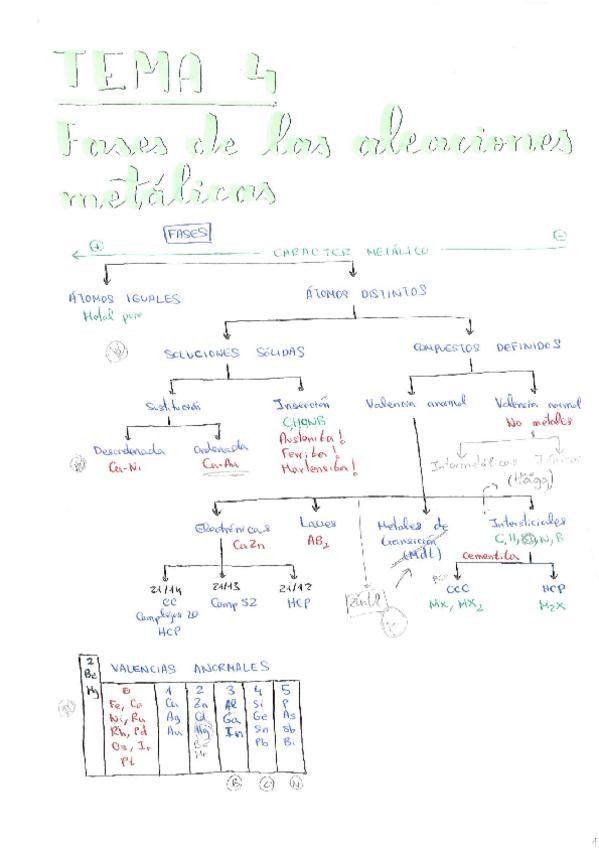 TEMA 4
Fases de las aleaciones
metálicas
FASES
+ CARACTER METÁLICO -
ÁTOMOS IGUALES
Metal puro
ÁTOMOS DISTINTOS
SOLUCIONES SÓLIDAS
COMPUESTOS DEFINIDOS
Sustitución
Inserción
C,H,O,N,B
Austenita!
Ferrita!
Martensita!
Valencia anormal
Valencia normal
No metales
Desordenada
Cu-Ni
Ordenada
Cu-Au
Intermetálicas
(Hägg)
Electrónicas
CuZn
Laves
AB2
Metales de
transición
Intersticiales
cementita
21/14
CC
Complejas 20
HCP
21/13
Comp 52
21/12
HCP
CCC
MX, MX2
HCP
M2X
2
Be
Mg
VALENCIAS ANORMALES
0 1 2 3 4 5
Fe, Co Cu Zn Al Si P
Ni, Ru Ag Cd Ga Ge As
Rh, Pd Au Hg In Sn Sb
Os, Ir Pb Bi
Pt
B C N
1